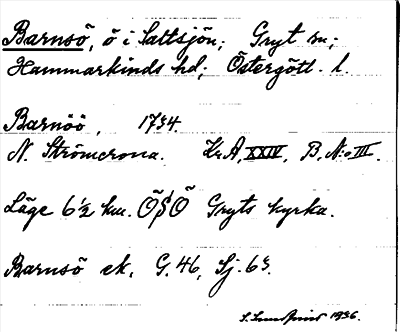 Barnsö, ö i Saltsjön; Gryt sn;
Hammarkinds hd; Östergötl. l.
Barnöö, 1734.
N. Strömcrona. Kr.A, XXIV, B, N:o III.
Läge 6 ½ km. ÖSÖ Gryts kyrka.
Barnsö ek. G. 46, Sj. 63.
1936.